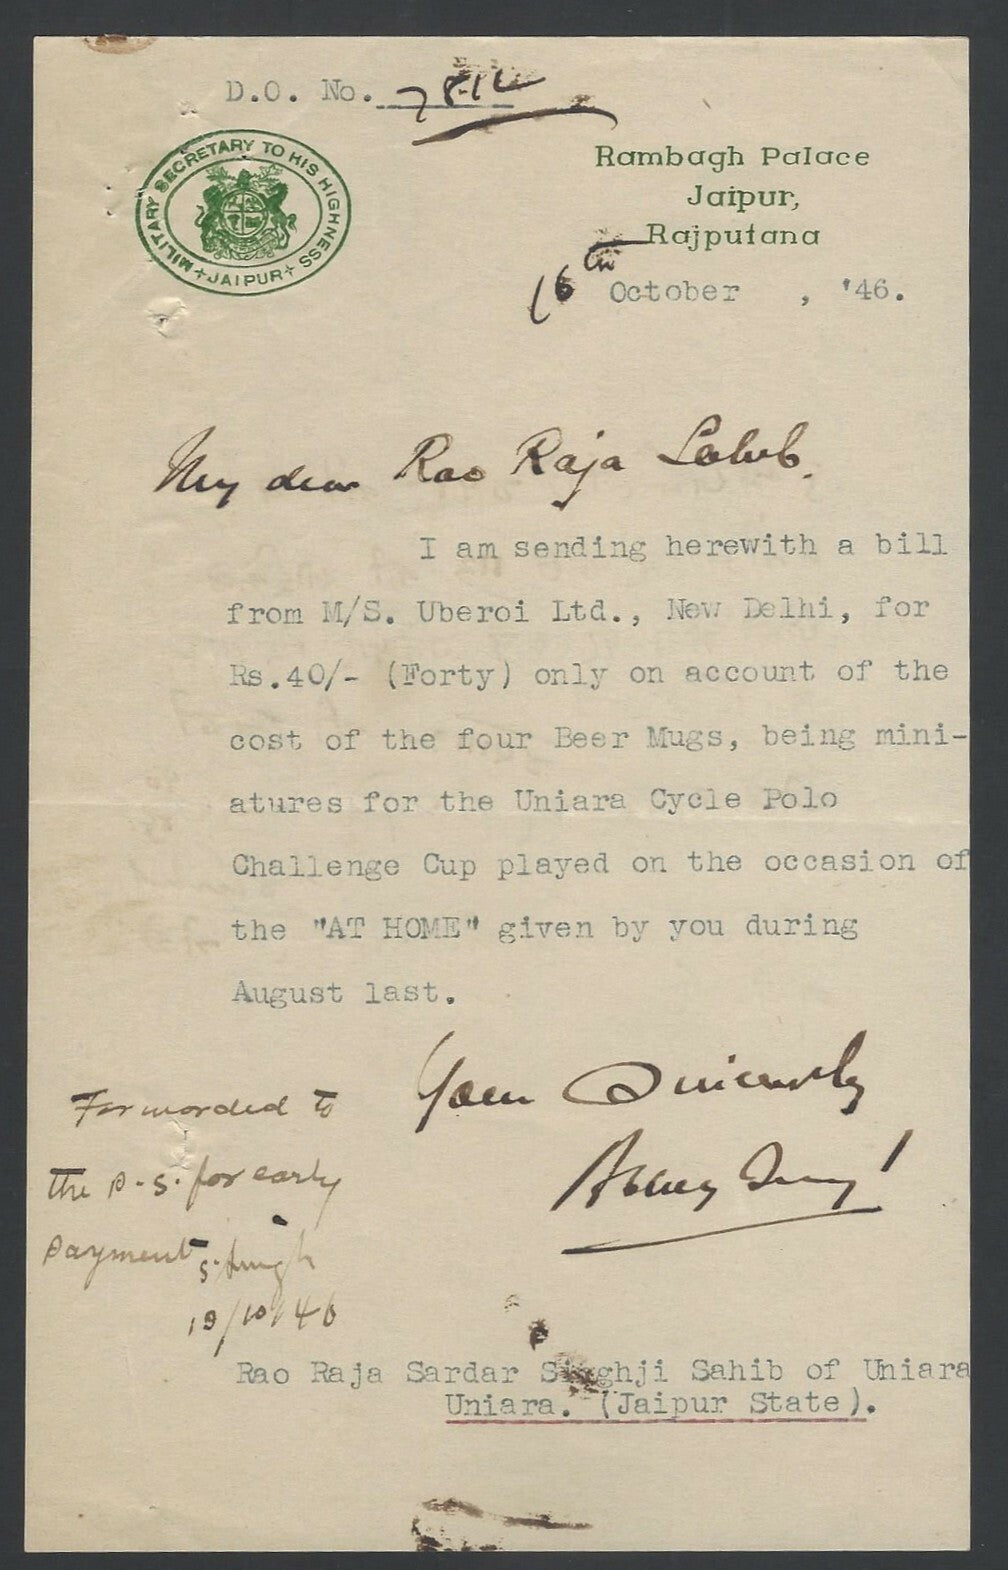 D.O. No. 7812
MILITARY SECRETARY TO HIS HIGHNESS
JAIPUR
Rambagh Palace
Jaipur,
Rajputana
16th October , '46.
My dear Rao Raja Sahib.
I am sending herewith a bill
from M/S. Uberoi Ltd., New Delhi, for
Rs.40/- (Forty) only on account of the
cost of the four Beer Mugs, being mini-
atures for the Uniara Cycle Polo
Challenge Cup played on the occasion of
the "AT HOME" given by you during
August last.
Yours Sincerely
Forwarded to
the P.S. for early
payment
S. Singh
19/10/46
Rao Raja Sardar Singhji Sahib of Uniara
Uniara. (Jaipur State).